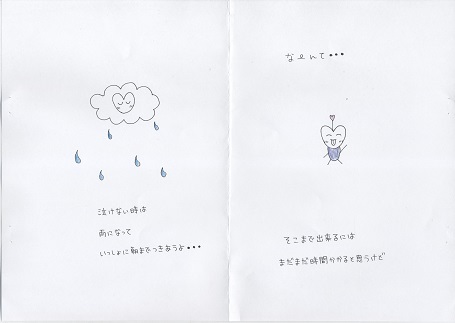 泣けない時は
雨になって
いっしょに朝までつきあうよ・・・
なぁんて・・・
そこまで出来るには
まだまだ時間かかると思うけど